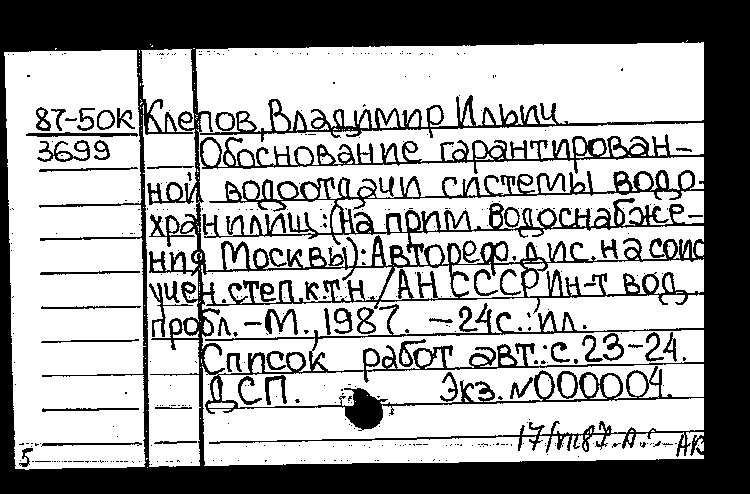 87-50К Клепов, Владимир Ильич.
3699 Обоснование гарантирован-
ной водоотдачи системы водо-
хранилищ: (На прим. водоснабже-
ния Москвы): Автореф. дис. на соис
учен. степ. к.т.н. / АН СССР, Ин-т вод.
пробл. - М., 1987. - 24с.: ил.
Список работ авт.: с. 23-24.
ДСП. Экз. N000004.
АК
5